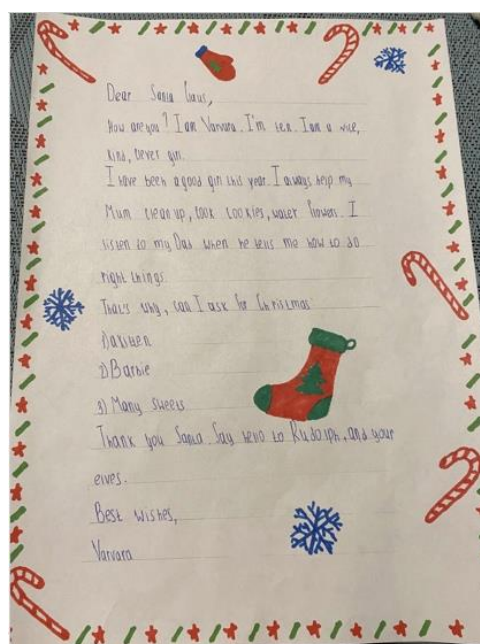 Dear Santa Claus,
How are you? I am Varvara. I'm ten. I am a nice,
kind, clever girl.
I have been a good girl this year. I always help my
Mum clean up, cook cookies, water flowers. I
listen to my Dad when he tells me how to do
right things.
That's why, can I ask for Christmas
1) a kitten
2) Barbie
3) Many sweets
Thank you Santa. Say hello to Rudolph, and your
elves.
Best wishes,
Varvara